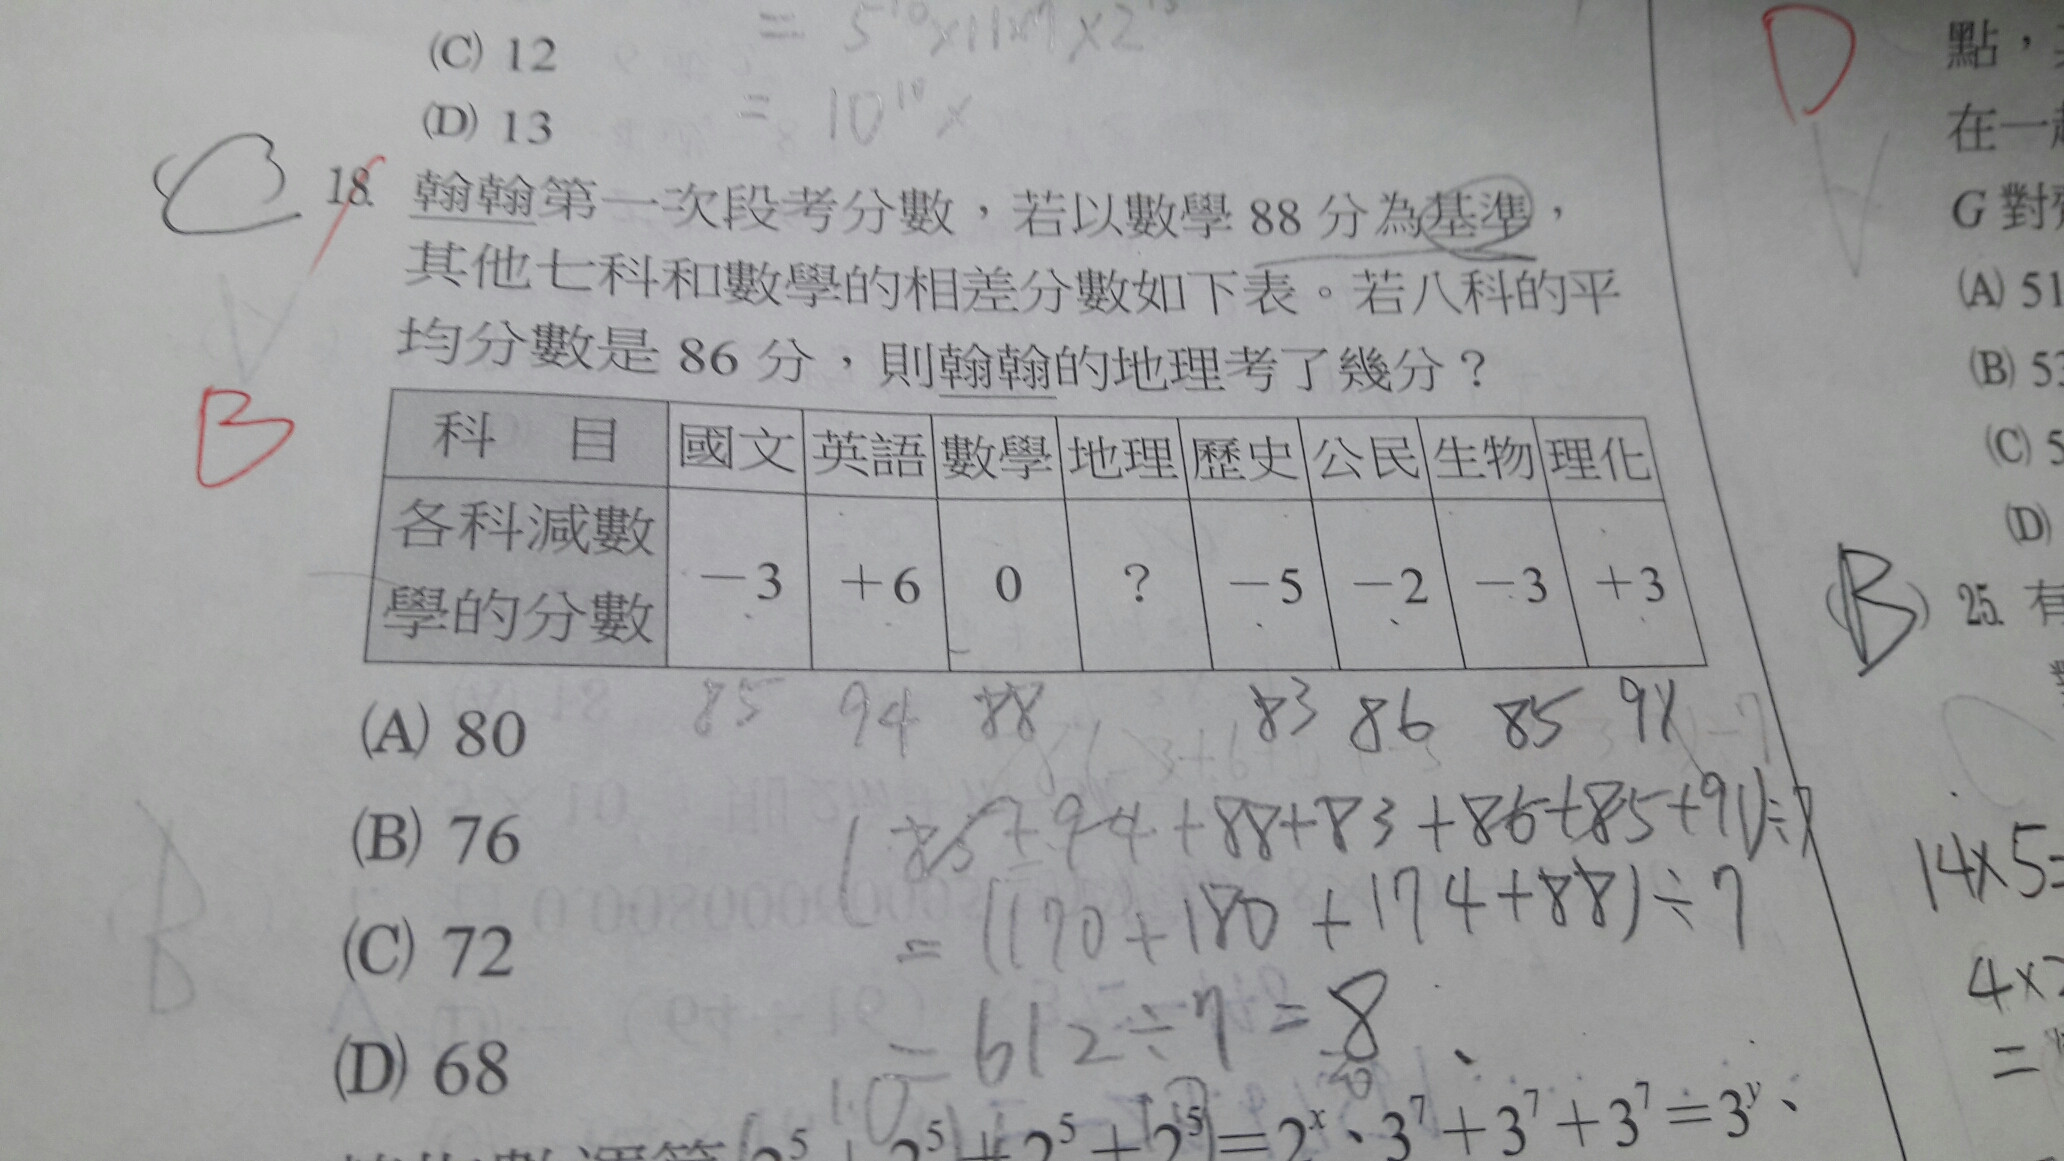 (C) 12
(D) 13
18. 翰翰第一次段考分數，若以數學 88 分為基準，
其他七科和數學的相差分數如下表。若八科的平
均分數是 86 分，則翰翰的地理考了幾分？
B
科 目 國文 英語 數學 地理 歷史 公民 生物 理化
各科減數
學的分數 －3 ＋6 0 ? －5 －2 －3 ＋3
85 94 88 83 86 85 91
(A) 80
(B) 76
(C) 72
(D) 68
(85+94+88+83+86+85+91)÷7
=(170+180+174+88)÷7
=612÷7=8
+3⁷+3⁷=3ʸ、
D
點，
在一
G 對
(A) 51
(B) 53
(C) 5
(D)
(B) 25. 有
14×5=
4×2
=